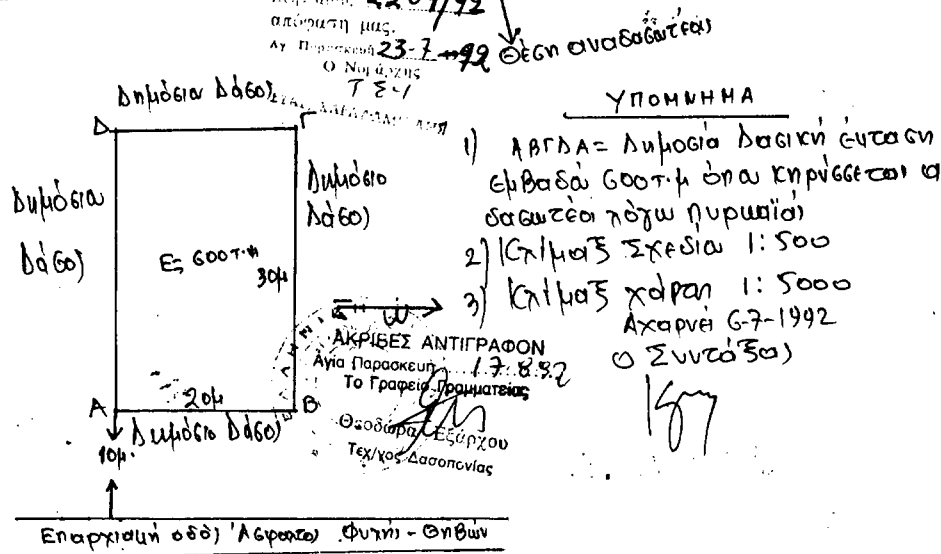 2204/92
απόφαση μας.
Αγ. Παρασκευή 23-7-92
Ο Νομάρχης
Θέση αναδασωτέας
Δημόσιο Δάσος
Δ
Γ
Δημόσιο
Δάσος
Δημόσιο
Δάσος
Ε= 600τ.μ
30μ
20μ
Α
Β
Δημόσιο Δάσος
10μ.
Επαρχιακή οδός Άσφαλτος Φυλής - Θηβών
ΥΠΟΜΝΗΜΑ
1) ΑΒΓΔΑ = Δημοσία Δασική έκταση
εμβαδού 600τ.μ όπου κηρύσσεται α
δασωτέα λόγω πυρκαϊάς
2) Κλίμαξ Σχεδίου 1:500
3) Κλίμαξ χάρτου 1:5000
Αχαρναί 6-7-1992
Ο Συντάξας
ΑΚΡΙΒΕΣ ΑΝΤΙΓΡΑΦΟΝ
Αγία Παρασκευή 17.8.92
Το Γραφείο Γραμματείας
Θεοδώρα Εξάρχου
Τεχ/γος Δασοπονίας